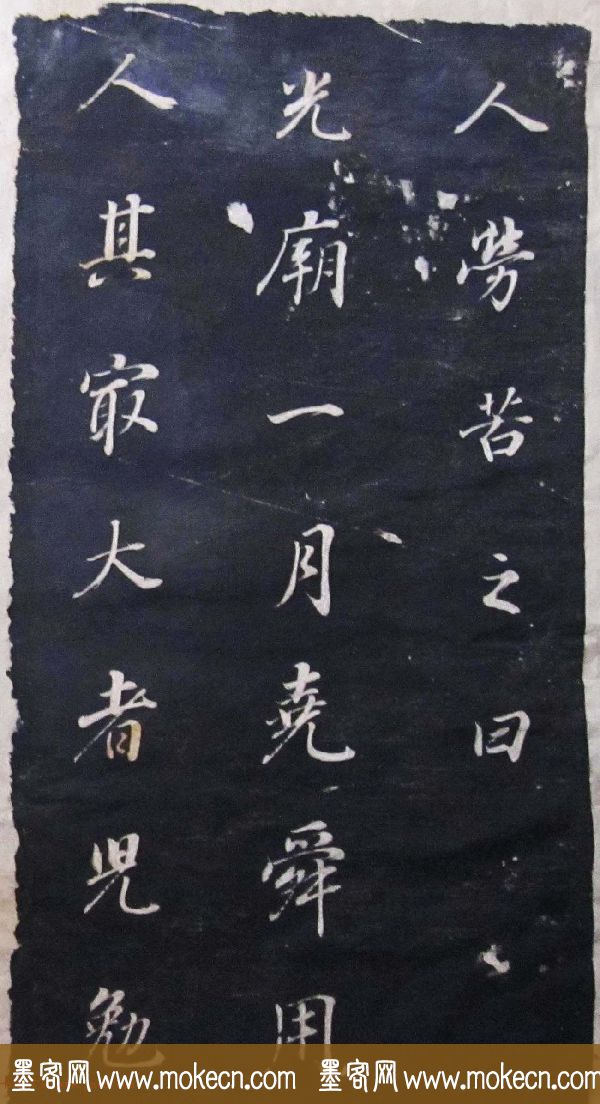 人劳苦之曰
光廟一月堯舜用
人其㝡大者児勉
墨客网 www.mokecn.com 墨客网 www.mokecn.com